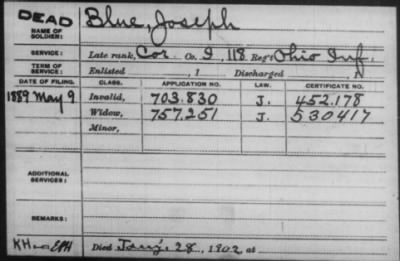 DEAD
NAME OF SOLDIER: Blue, Joseph
SERVICE: Late rank, Cor. Co. I, 118 Reg't Ohio Inf.
TERM OF SERVICE: Enlisted , 1 Discharged , 1
DATE OF FILING. CLASS. APPLICATION NO. LAW. CERTIFICATE NO.
1889 May 9 Invalid, 703.830 J. 452.178
Widow, 757.251 J. 530417
Minor,
ADDITIONAL SERVICES:
REMARKS:
Died Jany. 28, 1902, at